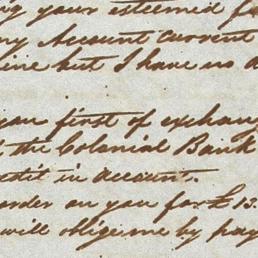 your esteemed f
my Account current
line but I have no d
you first of exchang
the Colonial Bank
edit in account.
order on you for £13.
will oblige me by pay